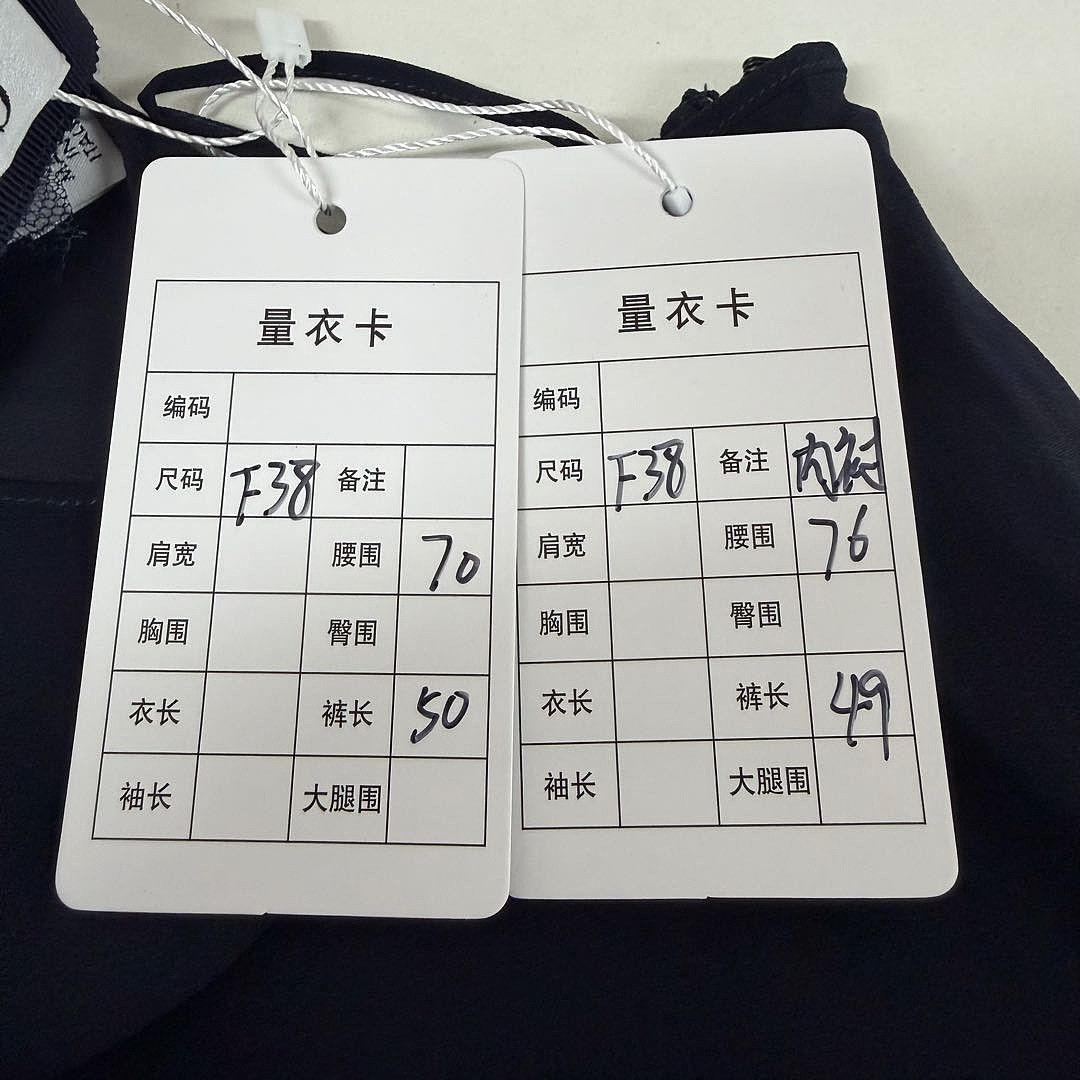 量衣卡
编码
尺码 F38 备注
肩宽 腰围 70
胸围 臀围
衣长 裤长 50
袖长 大腿围
量衣卡
编码
尺码 F38 备注 内衬
肩宽 腰围 76
胸围 臀围
衣长 裤长 49
袖长 大腿围